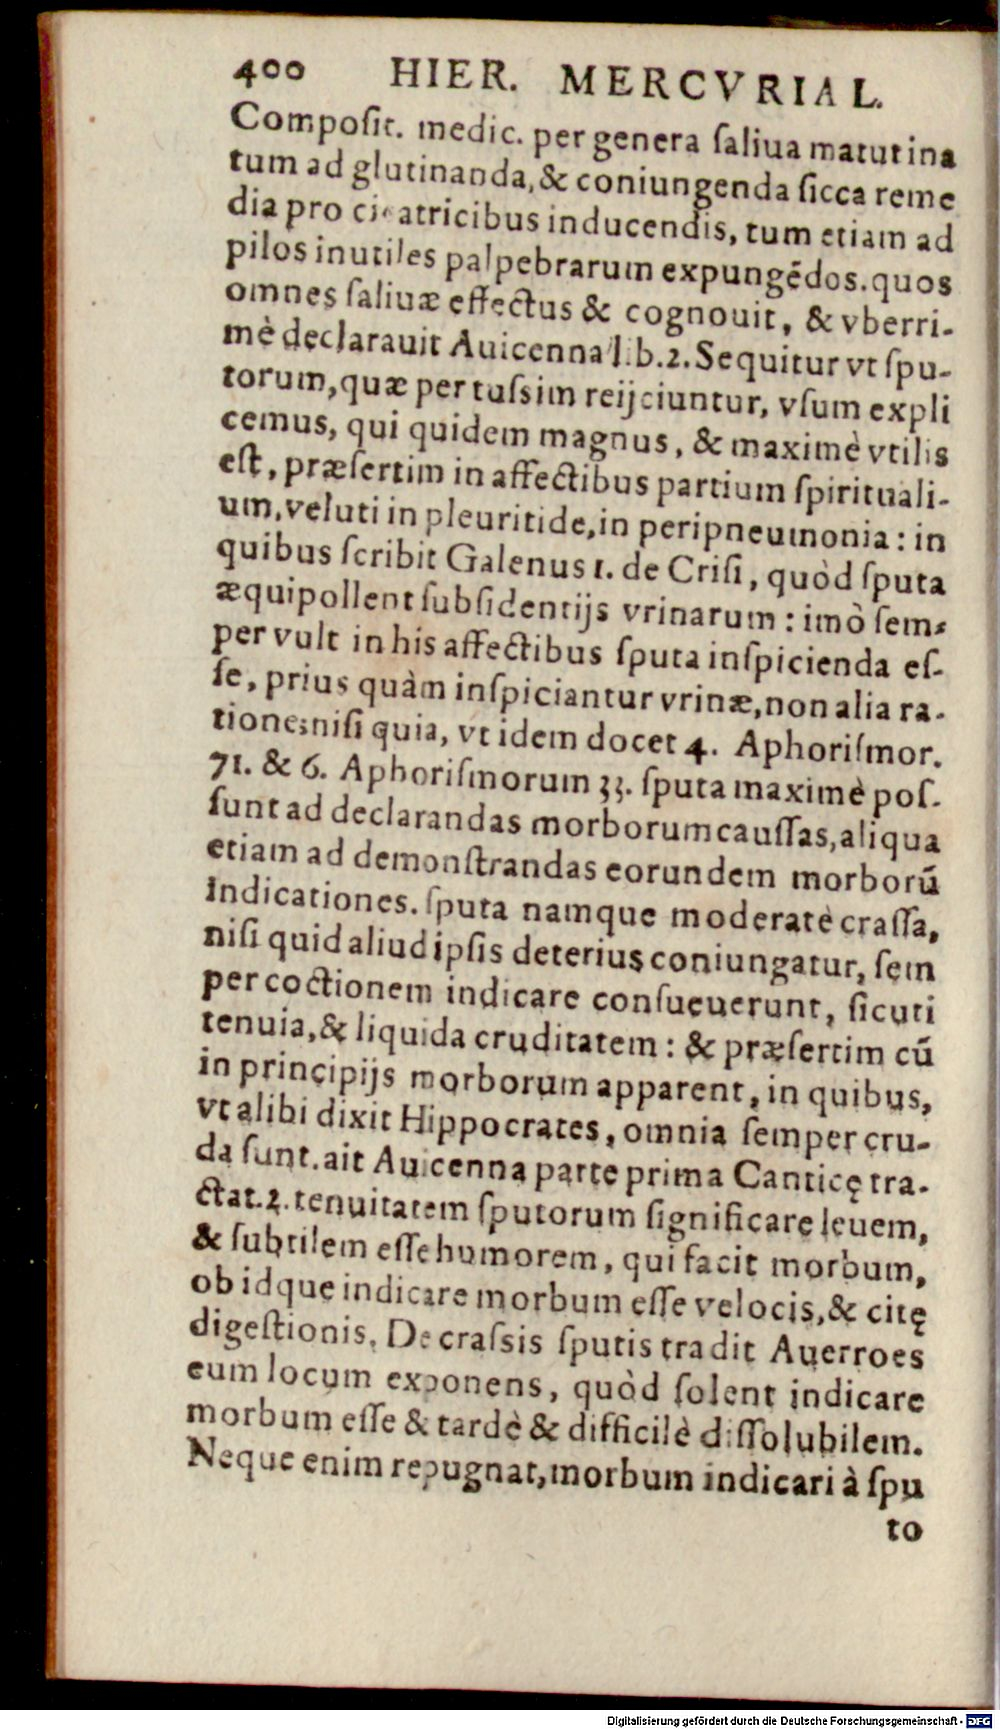 400 HIER. MERCVRIAL.
Compoſit. medic. per genera ſaliua matutina
tum ad glutinanda, & coniungenda ſicca reme
dia pro cicatricibus inducendis, tum etiam ad
pilos inutiles palpebrarum expungẽdos. quos
omnes ſaliuæ effectus & cognouit, & vberri-
mè declarauit Auicenna lib. 2. Sequitur vt ſpu-
torum, quæ per tuſsim reijciuntur, vſum expli
cemus, qui quidem magnus, & maximè vtilis
eſt, præſertim in affectibus partium ſpirituali-
um, veluti in pleuritide, in peripneumonia: in
quibus ſcribit Galenus 1. de Criſi, quòd ſputa
æquipollent ſubſidentijs vrinarum: imò ſem-
per vult in his affectibus ſputa inſpicienda eſ-
ſe, prius quàm inſpiciantur vrinæ, non alia ra-
tione; niſi quia, vt idem docet 4. Aphoriſmor.
71. & 6. Aphoriſmorum 33. ſputa maximè poſ-
ſunt ad declarandas morborum cauſſas, aliqua
etiam ad demonſtrandas eorundem morborũ
indicationes. ſputa namque moderatè craſſa,
niſi quid aliud ipſis deterius coniungatur, ſem
per coctionem indicare conſueuerunt, ſicuti
tenuia, & liquida cruditatem: & præſertim cũ
in principijs morborum apparent, in quibus,
vt alibi dixit Hippocrates, omnia ſemper cru-
da ſunt. ait Auicenna parte prima Canticę tra-
ctat. 2. tenuitatem ſputorum ſignificare leuem,
& ſubtilem eſſe humorem, qui facit morbum,
ob idque indicare morbum eſſe velocis, & citę
digeſtionis. De craſsis ſputis tradit Auerroes
eum locum exponens, quòd ſolent indicare
morbum eſſe & tardè & difficilè diſſolubilem.
Neque enim repugnat, morbum indicari à ſpu
to
Digitalisierung gefördert durch die Deutsche Forschungsgemeinschaft - DFG